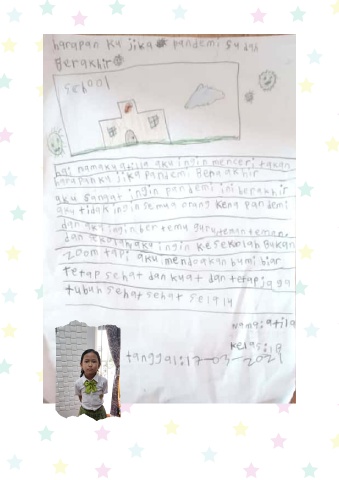 harapan ku jika pandemi sudah
Berakhir
School
hai namaku atila aku ingin menceritakan
harapanku jika pandemi Berakhir
aku sangat ingin pandemi ini berakhir
aku tidak ingin semua orang kena pandemi
dan aku ingin bertemu guru teman teman
dan sekolah aku ingin kesekolah Bukan
zoom tapi aku mendoakan bumi biar
tetap sehat dan kuat dan tetap jaga
tubuh sehat sehat selalu
nama: atila
kelas:
tanggal: 17-03-2021